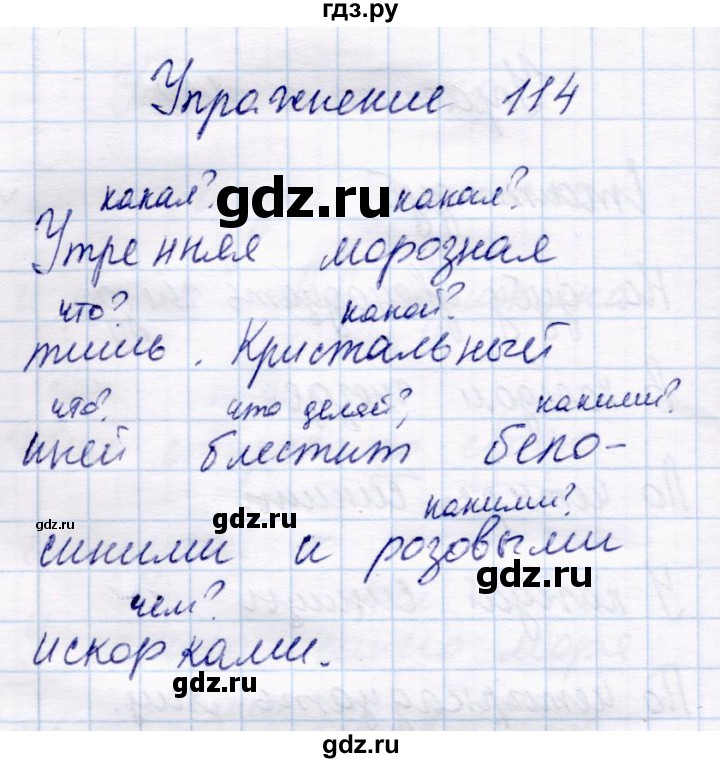 гдз.ру
Упражнение 114
какая? gdz.ru какая?
Утренняя морозная
что? какой?
тишь. Кристальный
что? что делай? какими?
иней блестит бело-
gdz.ru gdz.ru какими?
синими и розовыми
gdz.ru
чем?
искорками.
gdz.ru
gdz.ru